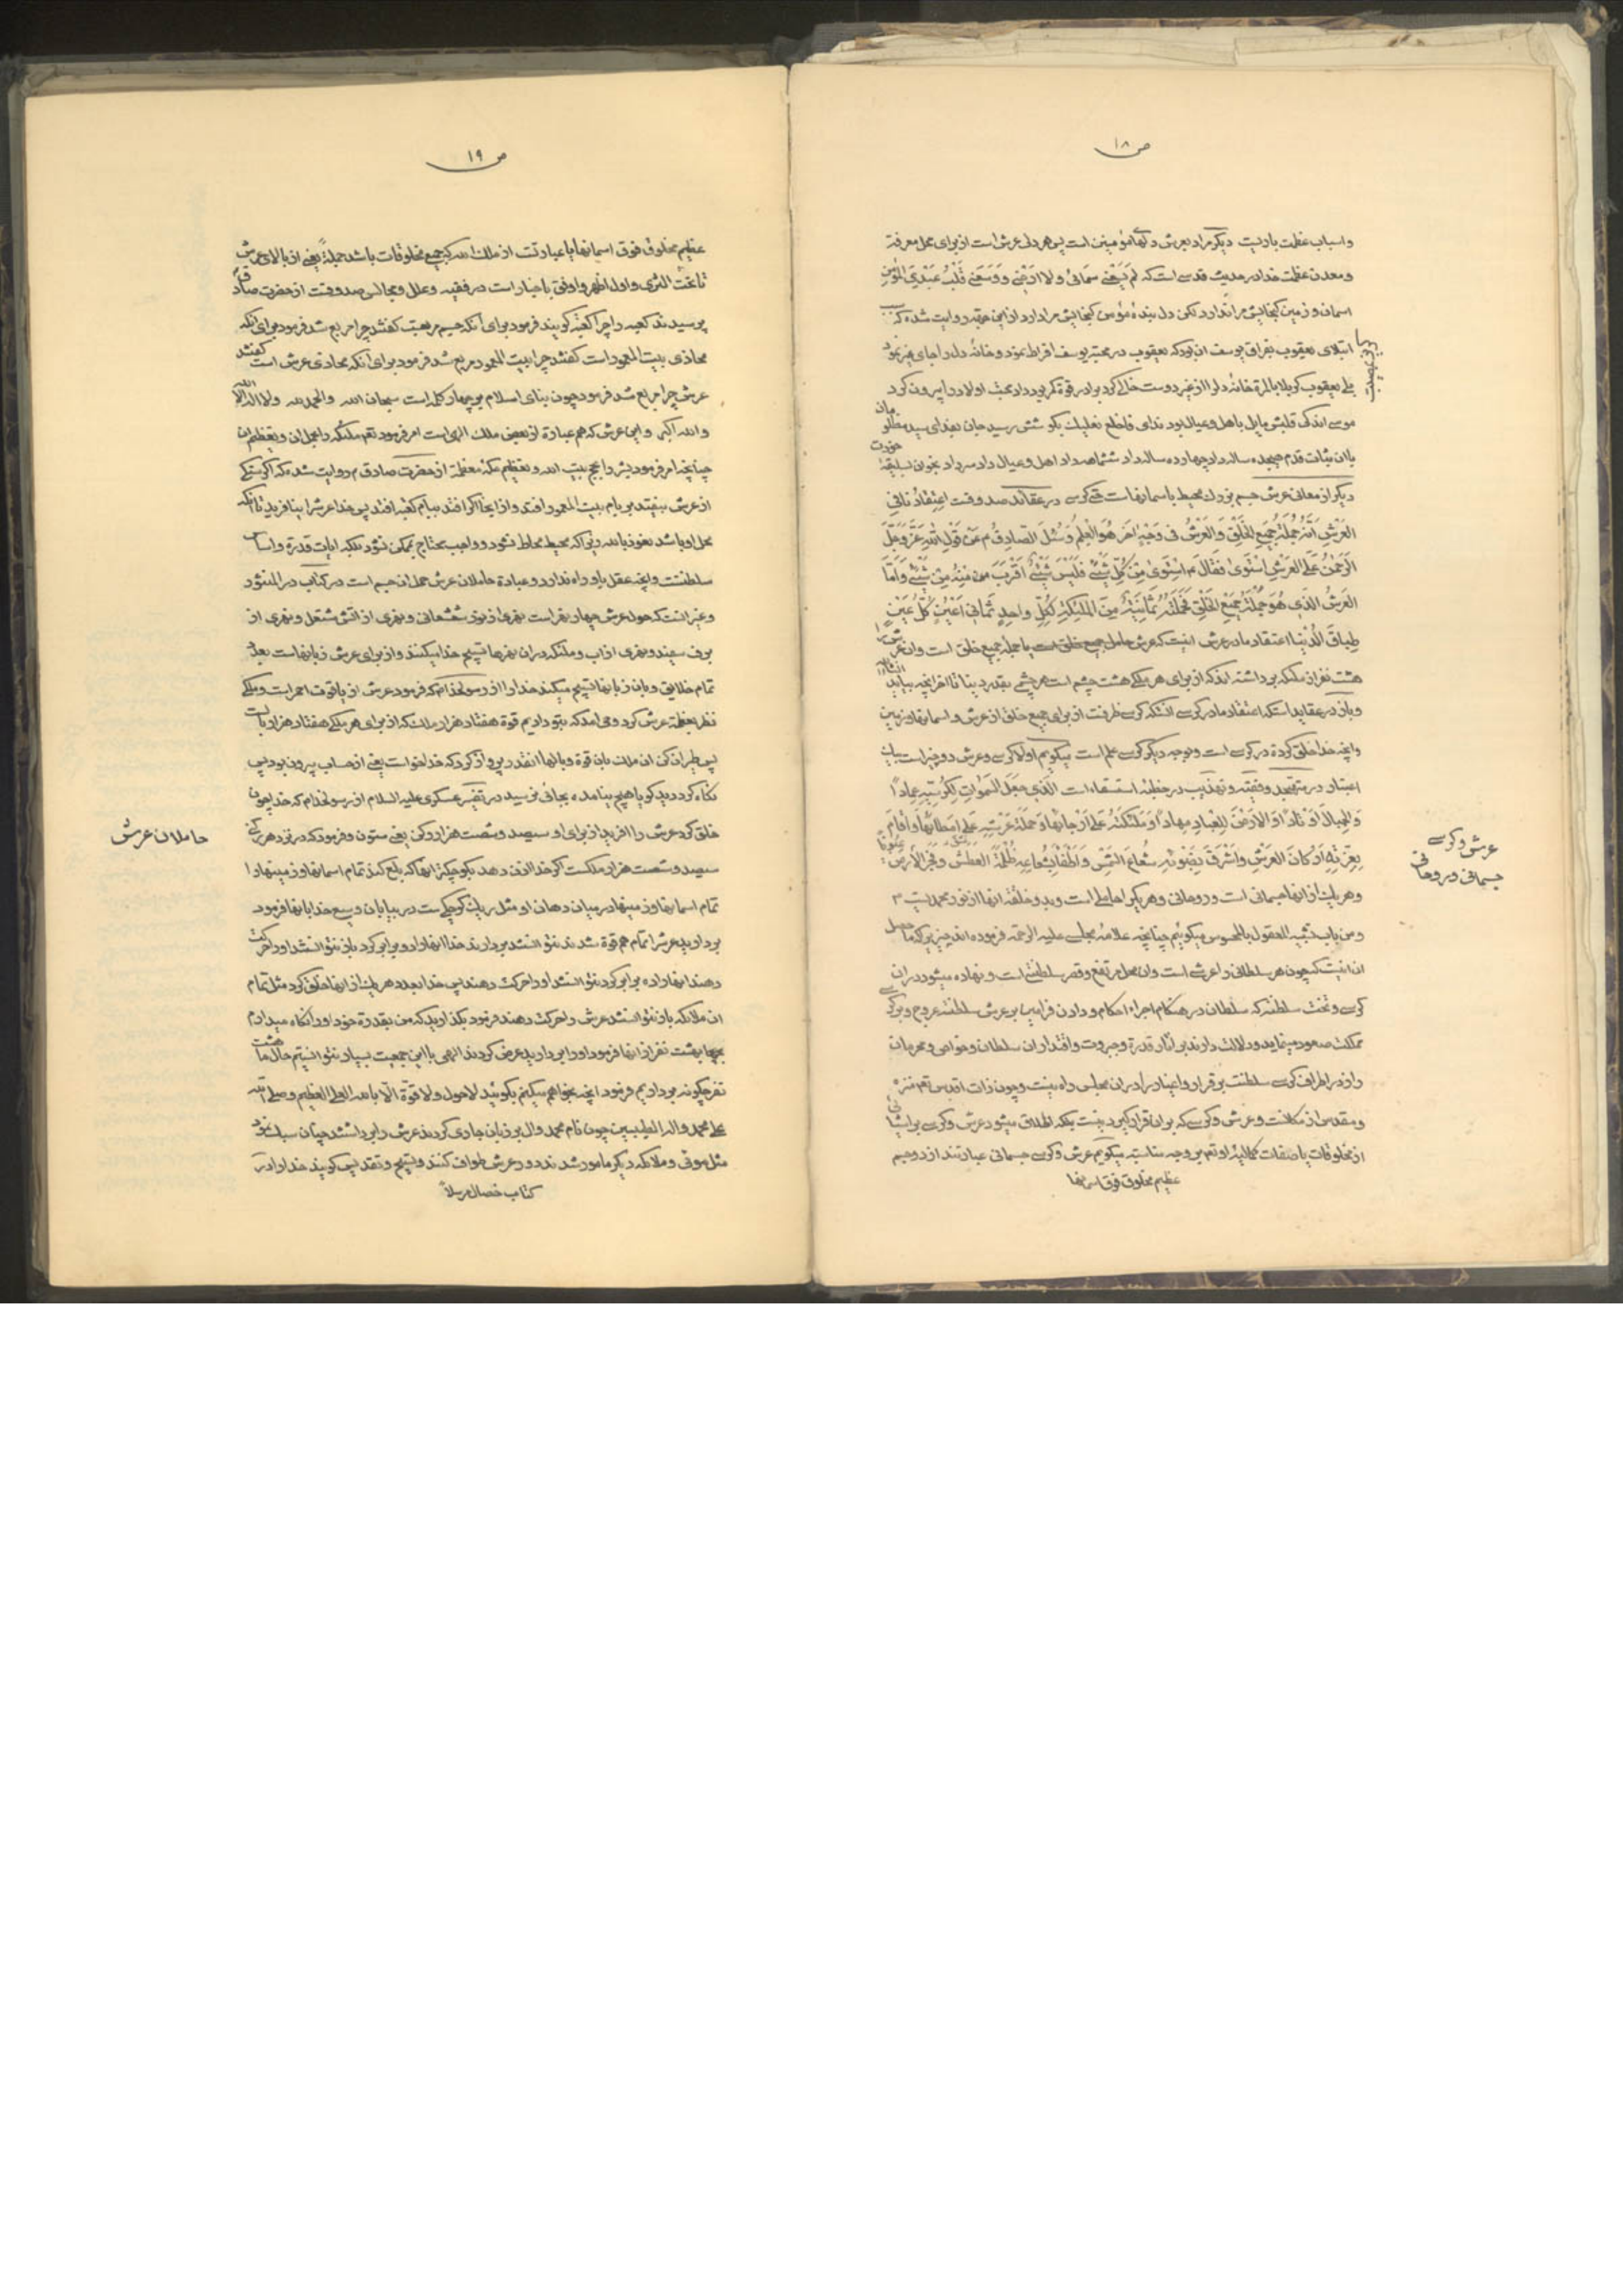 ص ١٨
و اسباب عظمت باریست دیگر مراد بعرش دلهای مؤمنین است پس هر دلی عرش است از برای محل معرفة
و معدن عظمت خدا در حدیث قدسی است که لم یسعنی سمائی و لا ارضی و وسعنی قلب عبدی المؤمن
اسمان و زمین کنجایش مرا ندارد لکن دل بنده مؤمن کنجایش مرا دارد از این جهة روایت شده که سبب
ابتلای یعقوب بفراق یوسف ان بود که یعقوب در محبة یوسف افراط نمود و خانه دل را جای غیر نمود
موسی اندکی قلبش مایل باهل و عیال بود ندای فاخلع نعلیک بکوشش رسید
دیگر از معانی عرش جسم بزرک محیط باسمانها است حتی کرسی در عقائد صدوقست اعتقادنا فی
العَرْشِ اَنَّهُ جُمْلَةُ جَمیعِ الخَلْقِ وَ العَرْشُ فی وَجْهٍ اخَرَ هُوَ العِلْمُ وَ سُئِلَ الصادِقُ م عَنْ قَوْلِ اللهِ عَزَّ وَ جَلَّ
الرَّحْمنُ عَلَی العَرْشِ اسْتَوی فَقالَ م اسْتَوی مِنْ کُلِّ شَیْئٍ فَلَیْسَ شَیْئٌ اَقْرَبَ مِنْهُ مِنْ شَیْئٍ وَ اَمَّا
العَرْشُ الَّذی هُوَ جُمْلَةُ جَمیعِ الخَلْقِ فَحَمَلَتُهُ ثَمانِیَةٌ مِنَ المَلئِکَةِ لِکُلِّ واحِدٍ ثَمانِی اَعْیُنٍ کُلُّ عَیْنٍ
طِباقُ الدُّنْیا اعتقاد ما در عرش اینست که عرش حامل جمیع خلق است یا جمله جمیع خلق است و ان عرش را
هشت نفر از ملئکه برداشته اند که از برای هر ملکی هشت چشم است هر چشمی بقدر دنیا تا اخر انچه بیاید انشاالله
و باز در عقاید است که اعتقاد ما در کرسی انستکه کرسی ظرفست از برای جمیع خلق از عرش و اسمانها و زمین
و انچه خدا خلق کرده در کرسی است و بوجه دیگر کرسی علم است میکویم اولا کرسی و عرش دو چیز است بیک
اعتبار در متهجد و فقیه و تهذیب در خطبه استسقاء است الَّذی جَعَلَ السَّمواتِ لِکُرْسِیِّهِ عِماداً
وَ الجِبالَ اَوْتاداً وَ الاَرْضَ لِلعِبادِ مِهاداً وَ مَلئِکَتَهُ عَلی اَرْجائِها وَ حَمَلَةَ عَرْشِهِ عَلی اَمْطائِها وَ اَقامَ
بِعِزَّتِهِ اَرْکانَ العَرْشِ وَ اَشْرَقَ بِضَوْئِهِ شُعاعَ الشَّمْسِ وَ اَطْفَأَ بِشُعاعِهِ ظُلْمَةَ الغَطَشِ وَ فَجَّرَ الاَرْضَ عُیُوناً
و هر یک از انها جسمانی است و روحانی و هر یکرا حاملی است و بدو خلقة انها از نور محمدیست ص
و من باب تشبیه المعقول بالمحسوس میکوئیم چنانچه علامه مجلسی علیه الرحمة فرموده اند چیزیرا که ما حصل
ان اینست که چون هر سلطانی را عرشی است و ان محل مرتفع و قصر سلطنتی است و نهاده میشود در ان
کرسی و تخت سلطنة که سلطان در هنکام اجراء احکام و دادن فرامین بر عرش سلطنة عروج و بر کرسی
مملکت صعود مینماید و دلالت دارند بر اثار قدرة و جبروت و اقتدار ان سلطان و خواص و محرمان
را و در اطراف کرسی سلطنت برقرار و اغیار را در ان مجلس راه نیست و چون ذات اقدس تعم منزه
و مقدس از مکانست و عرش و کرسی که بر ان قرار کیرد نیست بلکه اطلاق میشود عرش و کرسی بر اشیائی
از مخلوقات یا صفات کمالیه او تعم بر وجه مناسبة میکویم عرش و کرسی جسمانی عبارتند از دو جسم
عظیم مخلوق فوق اسمانها
عرش و کرسی
جسمانی و روحانی
ص ١٩
عظیم مخلوق فوق اسمانها یا عبارتست از ملک الله که جمیع مخلوقات باشد جملةً یعنی از بالای عرش
تا تحت الثری و اول اظهر و اوفق باخبار است در فقیه و علل و مجالس صدوقست از حضرت صادق م
پرسیدند کعبه را چرا کعبه کویند فرمود برای آنکه جسم مربعست کفتند چرا مربع شد فرمود برای انکه
محاذی بیت المعمور است کفتند چرا بیت المعمور مربع شد فرمود برای انکه محاذی عرش است کفتند
عرش چرا مربع شد فرمود چون بنای اسلام بر چهار کلمه است سبحان الله و الحمد لله و لا اله الا الله
و الله اکبر و این عرش که هم عبارة از بعض ملک الهی است امر فرمود تعم ملئکه را بحمل ان و تعظیم ان
چنانچه امر فرمود بشر را بحج بیت الله و تعظیم مکه معظمة از حضرت صادق م روایت شده که اکر سنکی
از عرش بیفتد بر بام بیت المعمور افتد و از انجا اکر افتد ببام کعبه افتد پس خدا عرشرا نیافرید تا انکه
محل او باشد نعوذ بالله ربی که محیط محاط نشود و واجب محتاج ممکن نشود بلکه ایات قدرة و اسباب
سلطنت و انچه عقل باو راه ندارد و عبادة حاملان عرش حمل ان جسم است در کتاب در المنثور
و غیر انست که حول عرش چهار نهر است نهری از نور شعشعانی و نهری از اتش مشتعل و نهری از
برف سفید و نهری از اب و ملئکه در ان نهرها تسبیح خدا میکنند و از برای عرش زبانهاست بعدد
تمام خلایق و بان زبانها تسبیح میکند خدا را از رسولخدا م که فرمود عرش از یاقوت احمر است و ملکی
نظر بعظمة عرش کرد وحی امد که بتو دادیم قوة هفتاد هزار ملک که از برای هر ملکی هفتاد هزار بالست
پس طیران کن ان ملک بان قوة و بالها انقدر پرواز کرد که خدا خواست یعنی از حساب بیرون بود پس
نکاه کرد دید کویا هیچ نیامده بجائی نرسید در تفسیر عسکری علیه السلام از رسولخدا م که خدا چون
خلق کرد عرش را افرید از برای او سیصد و شصت هزار رکن یعنی ستون و فرمود که در نزد هر رکنی
سیصد و شصت هزار ملکست اکر خدا اذن دهد بکوچکتر انها که بلع کند تمام اسمانها و زمینها را
تمام اسمانها و زمینها در میان دهان او مثل ریک کوچکیست در بیابان وسیع خدا بانها فرمود
بردارید عرشرا تمام هم قوة شدند نتوانستند بردارند خدا انها را دو برابر کرد باز نتوانستند او را حرکت
دهند انها را ده برابر کرد نتوانستند او را حرکت دهند پس خدا بعدد هر یک از انها خلق کرد مثل تمام
ان ملائکه باز نتوانستند عرش را حرکت دهند فرمود بکذارید که من بقدرة خود او را نکاه میدارم
بهشت نفر از انها فرمود او را بردارید عرض کردند الهی با این جمعیت بسیار نتوانستیم حال ما هشت
نفر چکونه برداریم فرمود انچه بخواهم میکنم بکوئید لا حول و لا قوة الا بالله العلی العظیم و صلی الله
علی محمد و اله الطیبین چون نام محمد و ال بر زبان جاری کردند عرش را برداشتند چنان سبک شد
مثل موئی و ملائکه دیگر مامور شدند دور عرش طواف کنند و تسبیح و تقدیس کویند خدا را در
کتاب خصال مرسلاً
حاملان عرش